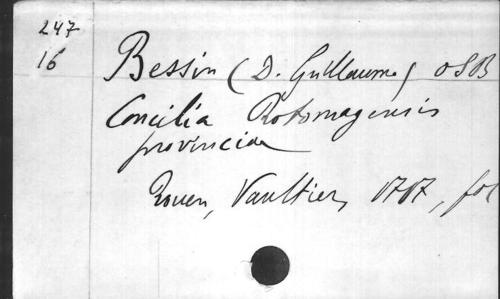 247
16
Bessin (D. Guillaume) OSB
Concilia Rotomagensis
provinciae
Rouen, Vaultier, 1717, fol